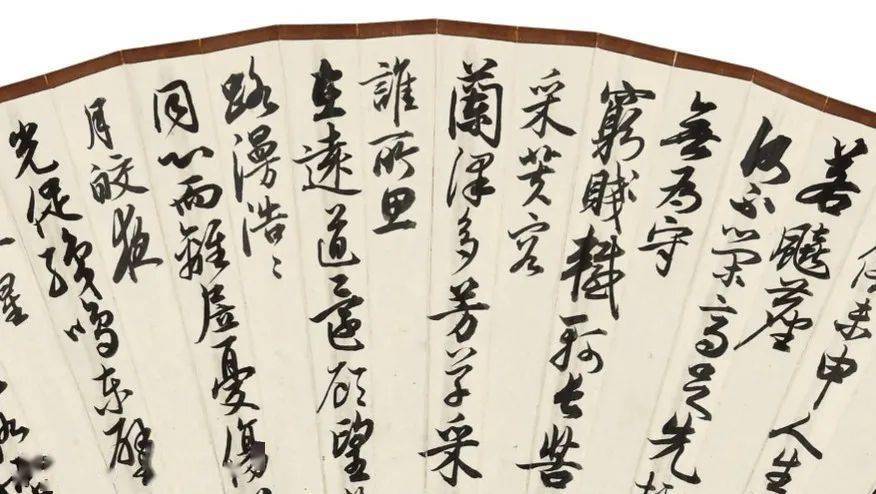 俱未申人生
若飆塵
何不策高足先
無為守
窮賤轗軻長苦
采芙容
蘭澤多芳草采
誰所思
在遠道還顧望
路漫浩〻
同心而離居憂傷
月皎夜
光促織鳴東壁
星